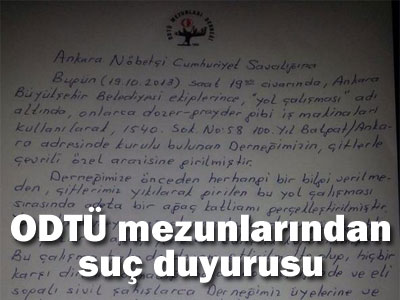 ODTÜ MEZUNLARI DERNEĞİ
Ankara Nöbetçi Cumhuriyet Savcılığına
Bugün (19.10.2013) saat 19⁰⁰ civarında, Ankara
Büyükşehir Belediyesi ekiplerince, "yol çalışması" adı
altında, onlarca dozer-grayder gibi iş makinaları
kullanılarak, 1540. Sok. No:58 100.Yıl Balgat/Anka-
ra adresinde kurulu bulunan Derneğimizin, çitlerle
çevrili özel arazisine girilmiştir.
Derneğimize önceden herhangi bir bilgi verilme-
den, çitlerimiz yıkılarak girilen bu yol çalışması
sırasında adeta bir ağaç katliamı gerçekleştirilmiştir.
ODTÜ mezunlarından
suç duyurusu
Bu çalışma
hiçbir
karşı
ve eli
sopalı sivil şahıslarca Derneğimiz üyelerine ve